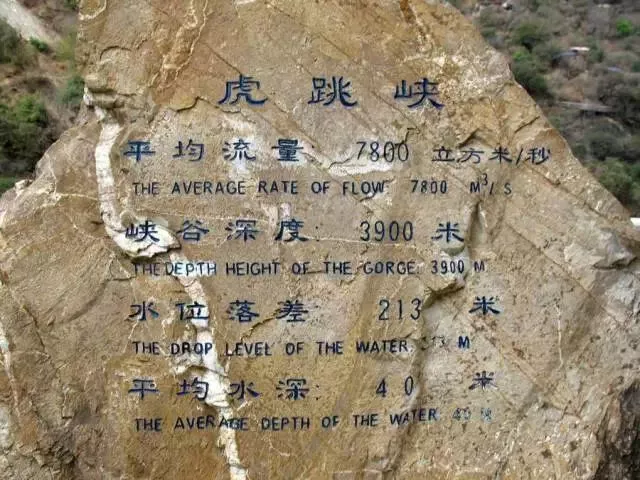 虎跳峡
平均流量: 7800 立方米/秒
THE AVERAGE RATE OF FLOW: 7800 M³/S
峡谷深度: 3900 米
THE DEPTH HEIGHT OF THE GORGE: 3900 M
水位落差: 213 米
THE DROP LEVEL OF THE WATER: 213 M
平均水深: 40 米
THE AVERAGE DEPTH OF THE WATER: 40 M